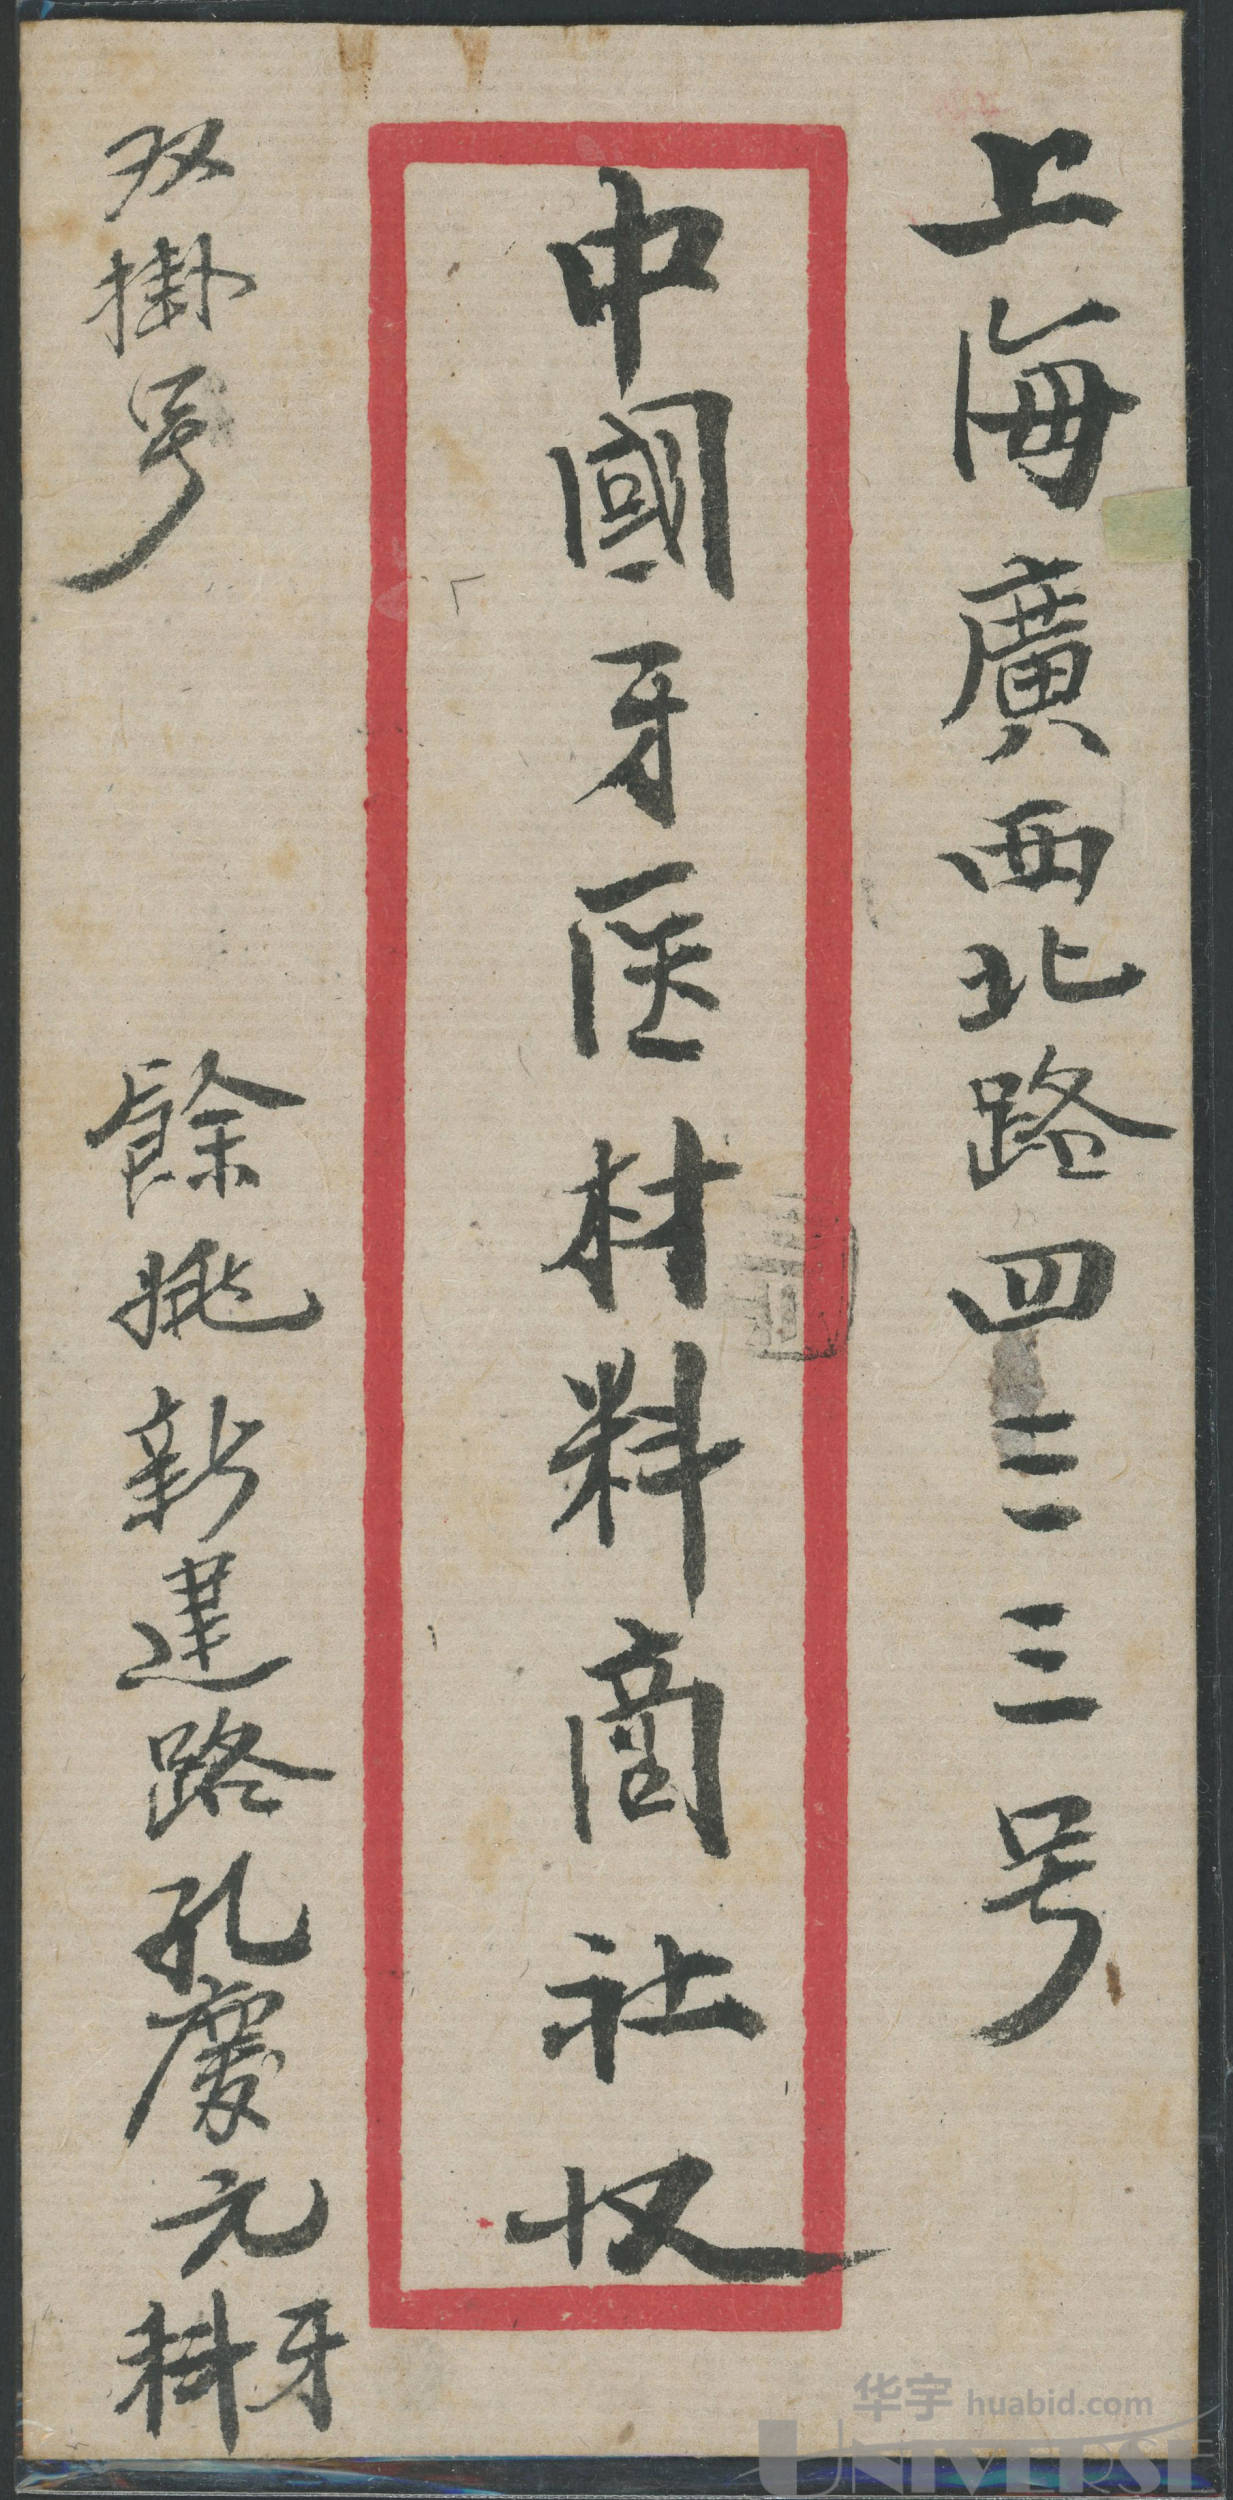 上海廣西北路四三三号
中國牙医材料商社收
双掛号
餘姚新建路孔慶元牙科
华宇 huabid.com
UNIVERSE